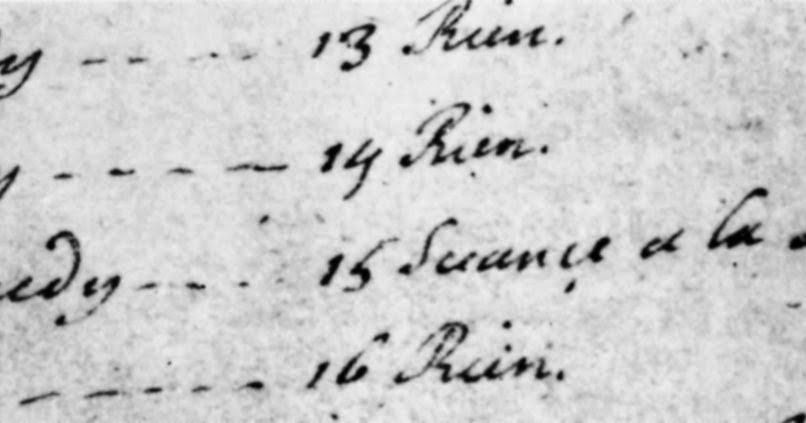 y ---- 13 Rien.
y ----- 14 Rien.
edy --- 15 Seance a la
------ 16 Rien.